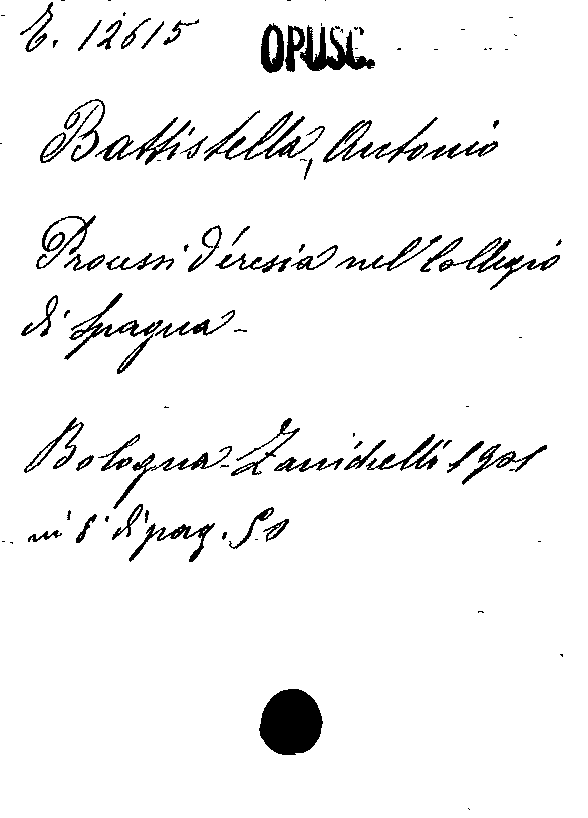 E. 12615 OPUSC.
Battistella, Antonio
Processi d'eresia nel Collegio
di Spagna -
Bologna - Zanichelli 1901
in 8° di pag. 50